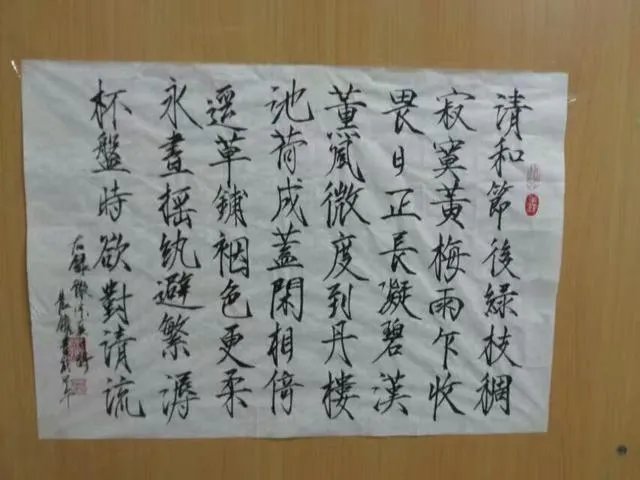 清和節後綠枝稠
寂寞黃梅雨乍收
畏日正長凝碧漢
薰風微度到丹樓
池荷成蓋閑相倚
逕草鋪裀色更柔
永晝搖紈避繁溽
杯盤時欲對清流
右錄